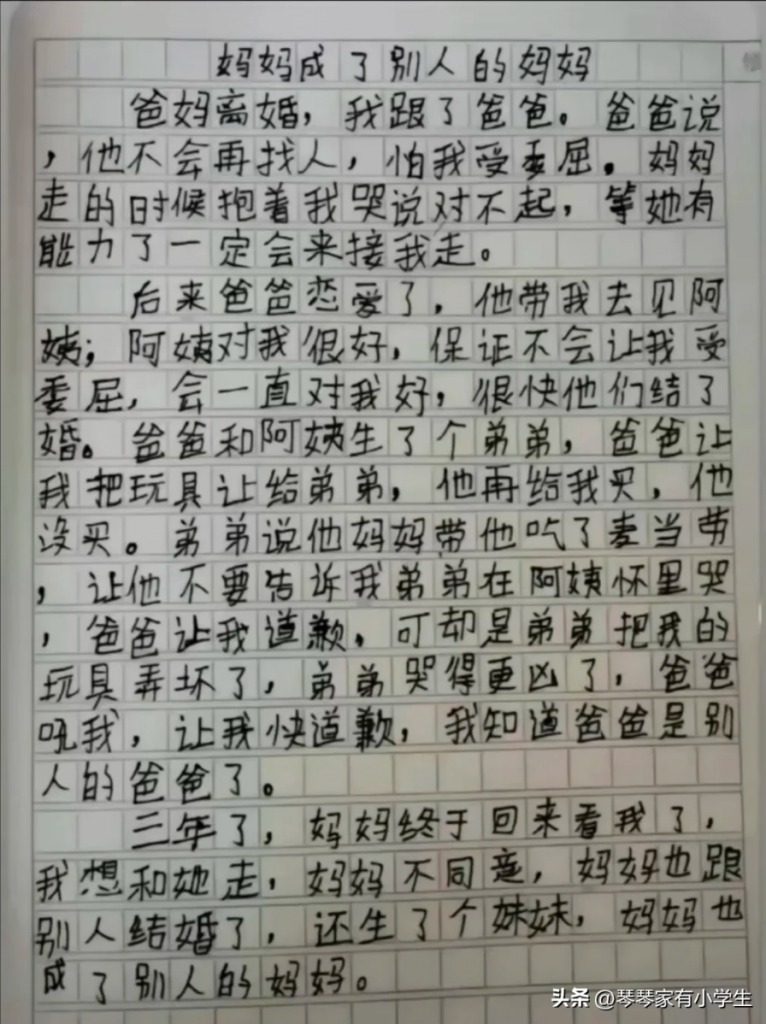 妈妈成了别人的妈妈
爸妈离婚，我跟了爸爸。爸爸说
，他不会再找人，怕我受委屈。妈妈
走的时候抱着我哭说对不起，等她有
能力了一定会来接我走。
后来爸爸恋爱了，他带我去见阿
姨；阿姨对我很好，保证不会让我受
委屈，会一直对我好，很快他们结了
婚。爸爸和阿姨生了个弟弟，爸爸让
我把玩具让给弟弟，他再给我买，他
没买。弟弟说他妈妈带他吃了麦当劳
，让他不要告诉我弟弟在阿姨怀里哭
，爸爸让我道歉。可却是弟弟把我的
玩具弄坏了，弟弟哭得更凶了，爸爸
吼我，让我快道歉，我知道爸爸是别
人的爸爸了。
三年了，妈妈终于回来看我了，
我想和她走，妈妈不同意，妈妈也跟
别人结婚了，还生了个妹妹，妈妈也
成了别人的妈妈。
头条 @琴琴家有小学生